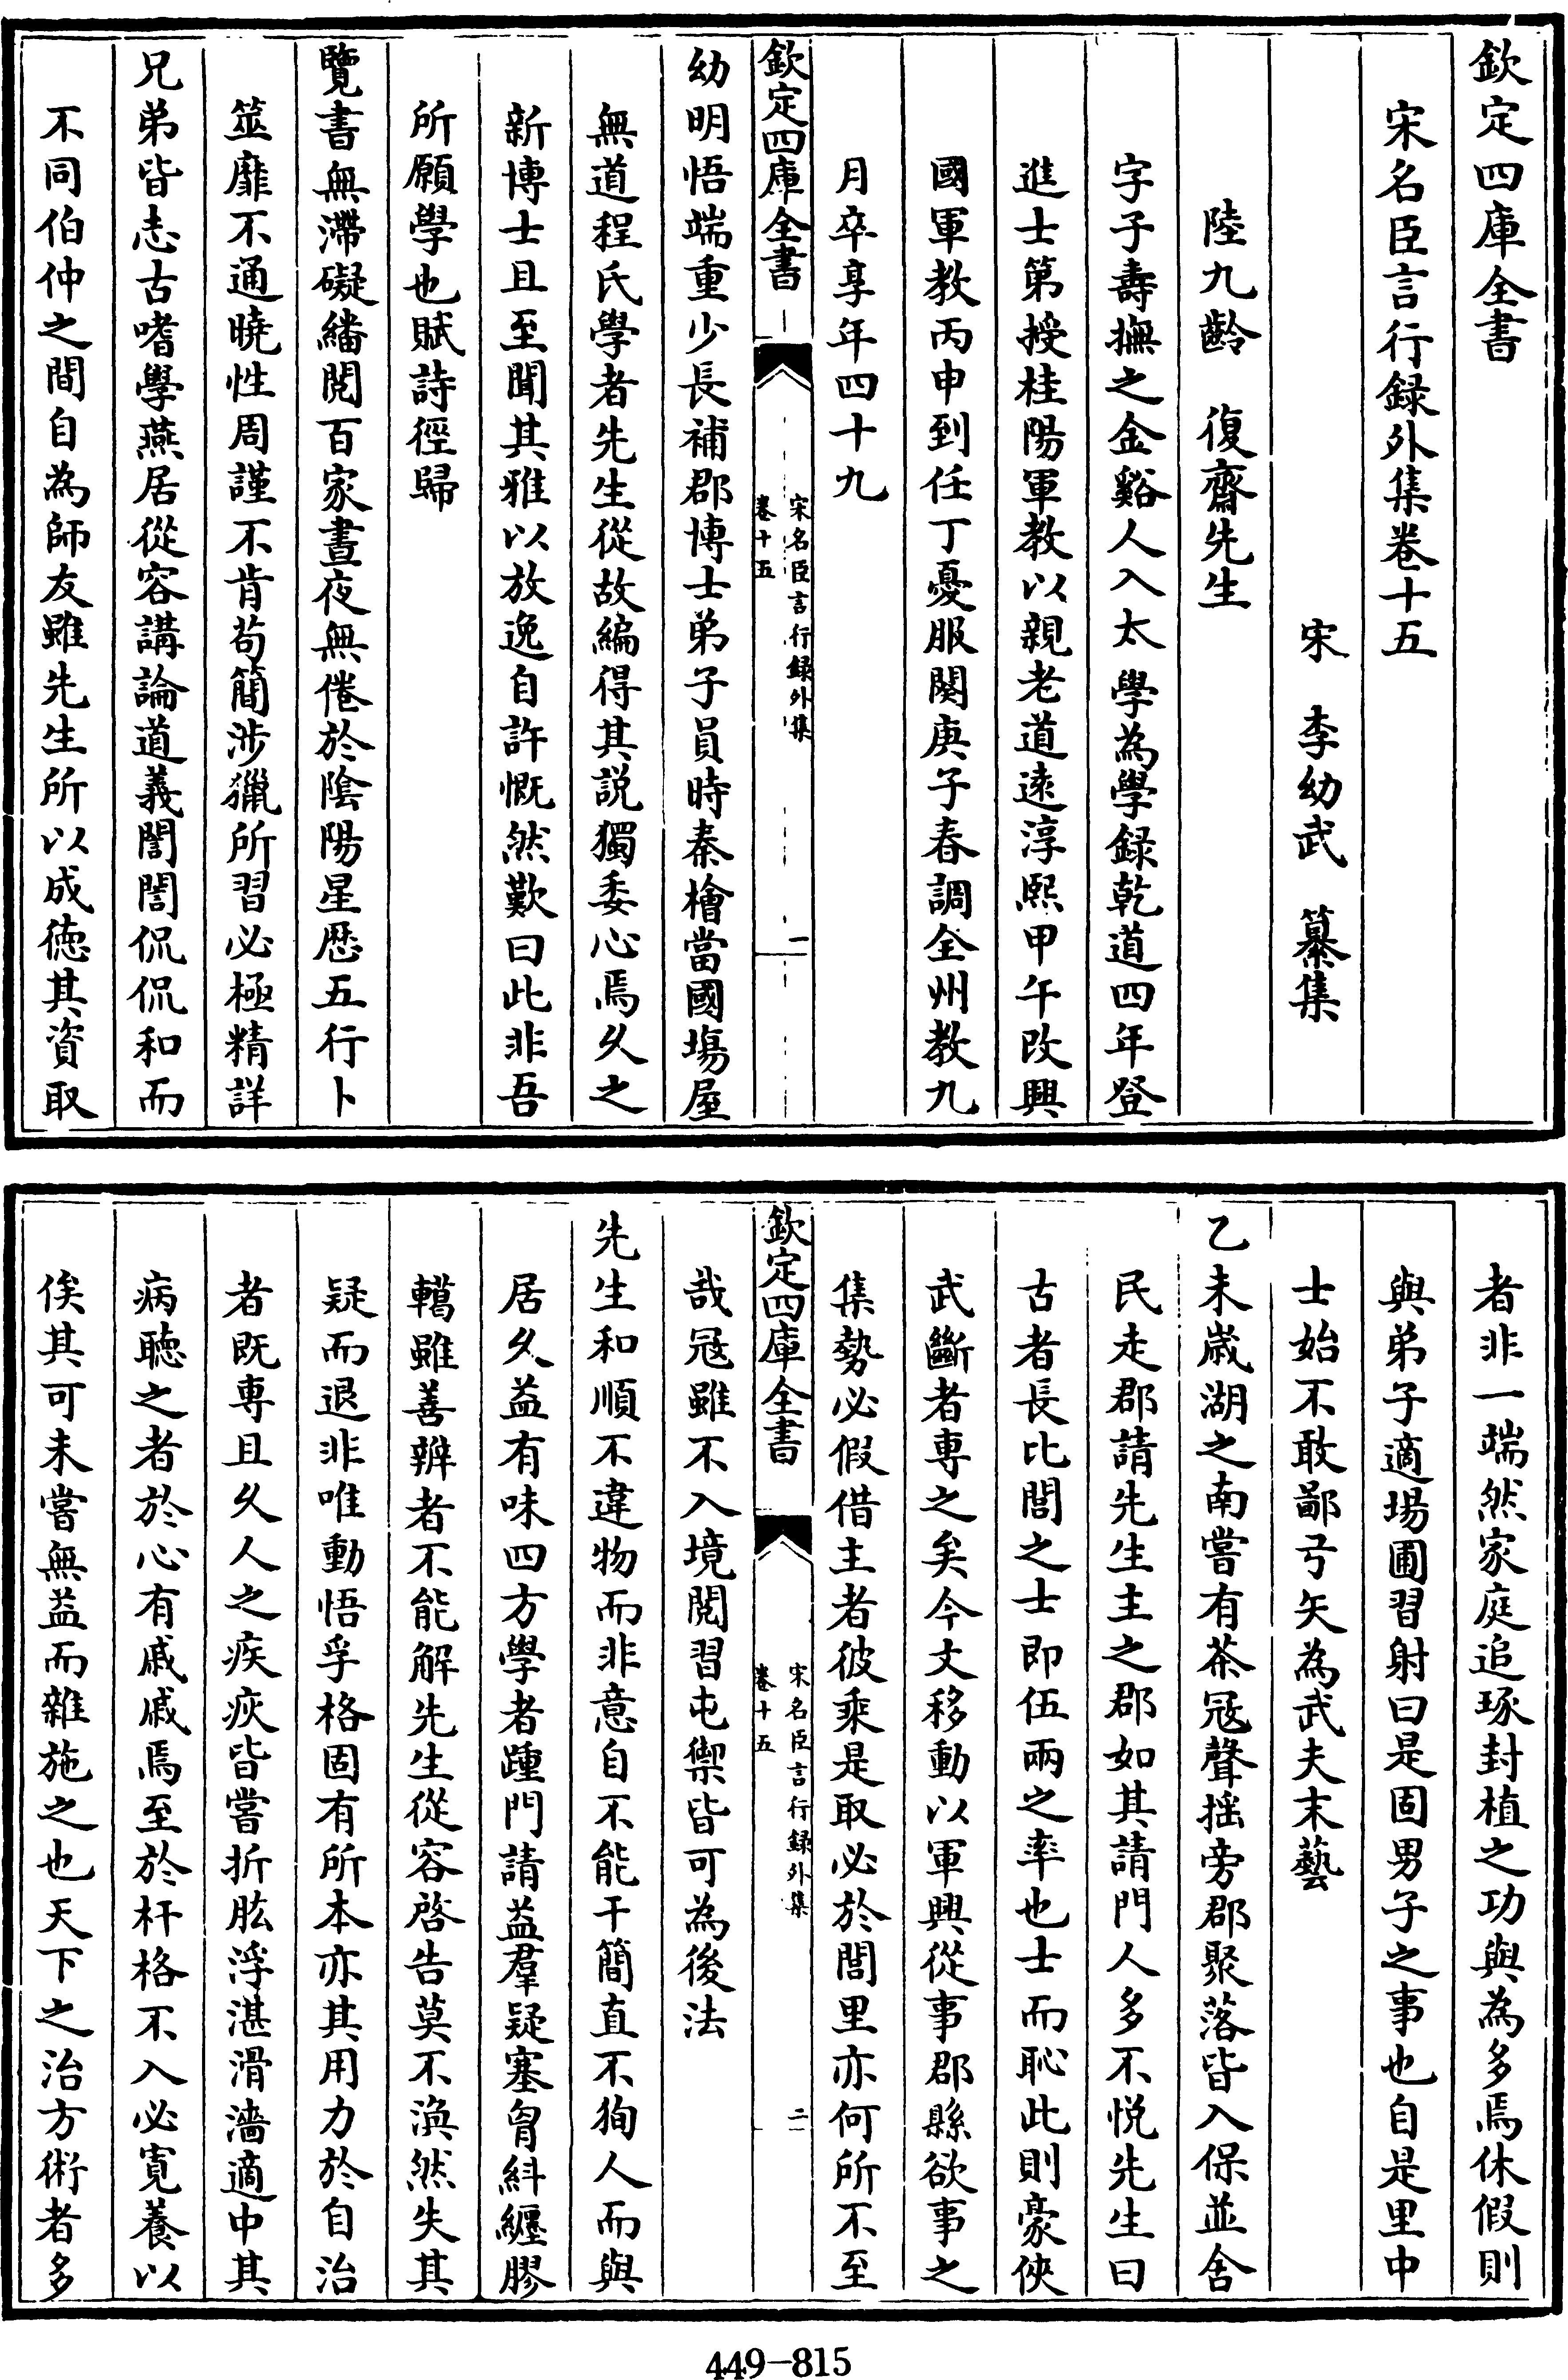 欽定四庫全書
宋名臣言行録外集卷十五
宋 李幼武 纂集
陸九齡 復齋先生
字子壽撫之金谿人入太學為學録乾道四年登
進士第授桂陽軍教以親老道逺淳熙甲午改興
國軍教丙申到任丁憂服闋庚子春調全州教九
月卒享年四十九
欽定四庫全書
宋名臣言行録外集
卷十五
一
幼明悟端重少長補郡博士弟子員時秦檜當國塲屋
無道程氏學者先生從故編得其説獨委心焉久之
新博士且至聞其雅以放逸自許慨然歎曰此非吾
所願學也賦詩徑歸
覽書無滯礙繙閲百家晝夜無倦於陰陽星厯五行卜
筮靡不通曉性周謹不肯苟簡涉獵所習必極精詳
兄弟皆志古嗜學燕居從容講論道義誾誾侃侃和而
不同伯仲之間自為師友雖先生所以成徳其資取
者非一端然家庭追琢封植之功與為多焉休假則
與弟子適場圃習射曰是固男子之事也自是里中
士始不敢鄙弓矢為武夫末藝
乙未嵗湖之南嘗有茶冦聲揺旁郡聚落皆入保並舍
民走郡請先生主之郡如其請門人多不悦先生曰
古者長比閭之士即伍兩之率也士而恥此則豪俠
武斷者専之矣今文移動以軍興從事郡縣欲事之
集勢必假借主者彼乘是取必於閭里亦何所不至
欽定四庫全書
宋名臣言行録外集
卷十五
二
哉冦雖不入境閲習屯禦皆可為後法
先生和順不違物而非意自不能干簡直不狥人而與
居久益有味四方學者踵門請益羣疑塞胷糾纒膠
轕雖善辨者不能解先生從容啓告莫不渙然失其
疑而退非唯動悟孚格固有所本亦其用力於自治
者既専且久人之疾疢皆嘗折肱浮湛滑濇適中其
病聴之者於心有戚戚焉至於杆格不入必寛養以
俟其可未嘗無益而雜施之也天下之治方術者多
449-815